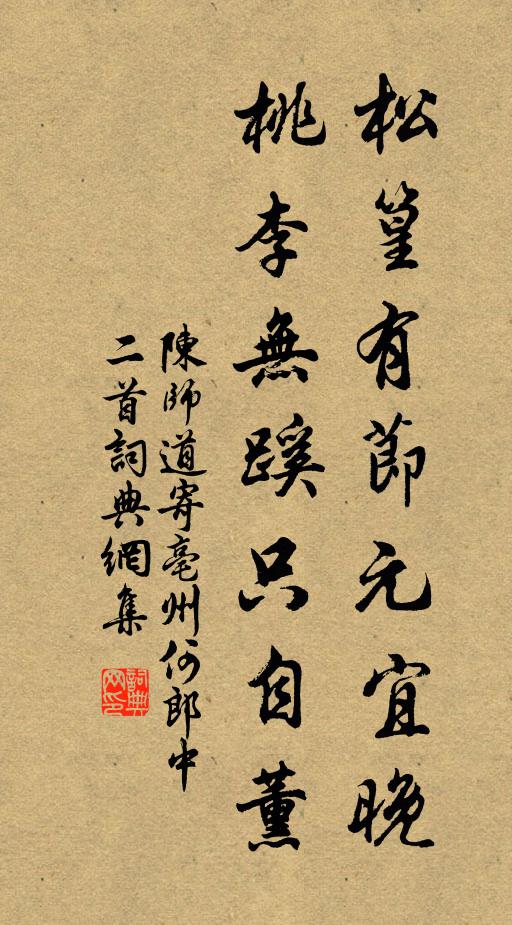 松篁有節元宜晚
桃李無蹊只自薰
陳師道寄亳州何郎中
二首詞典網集
詞典网印